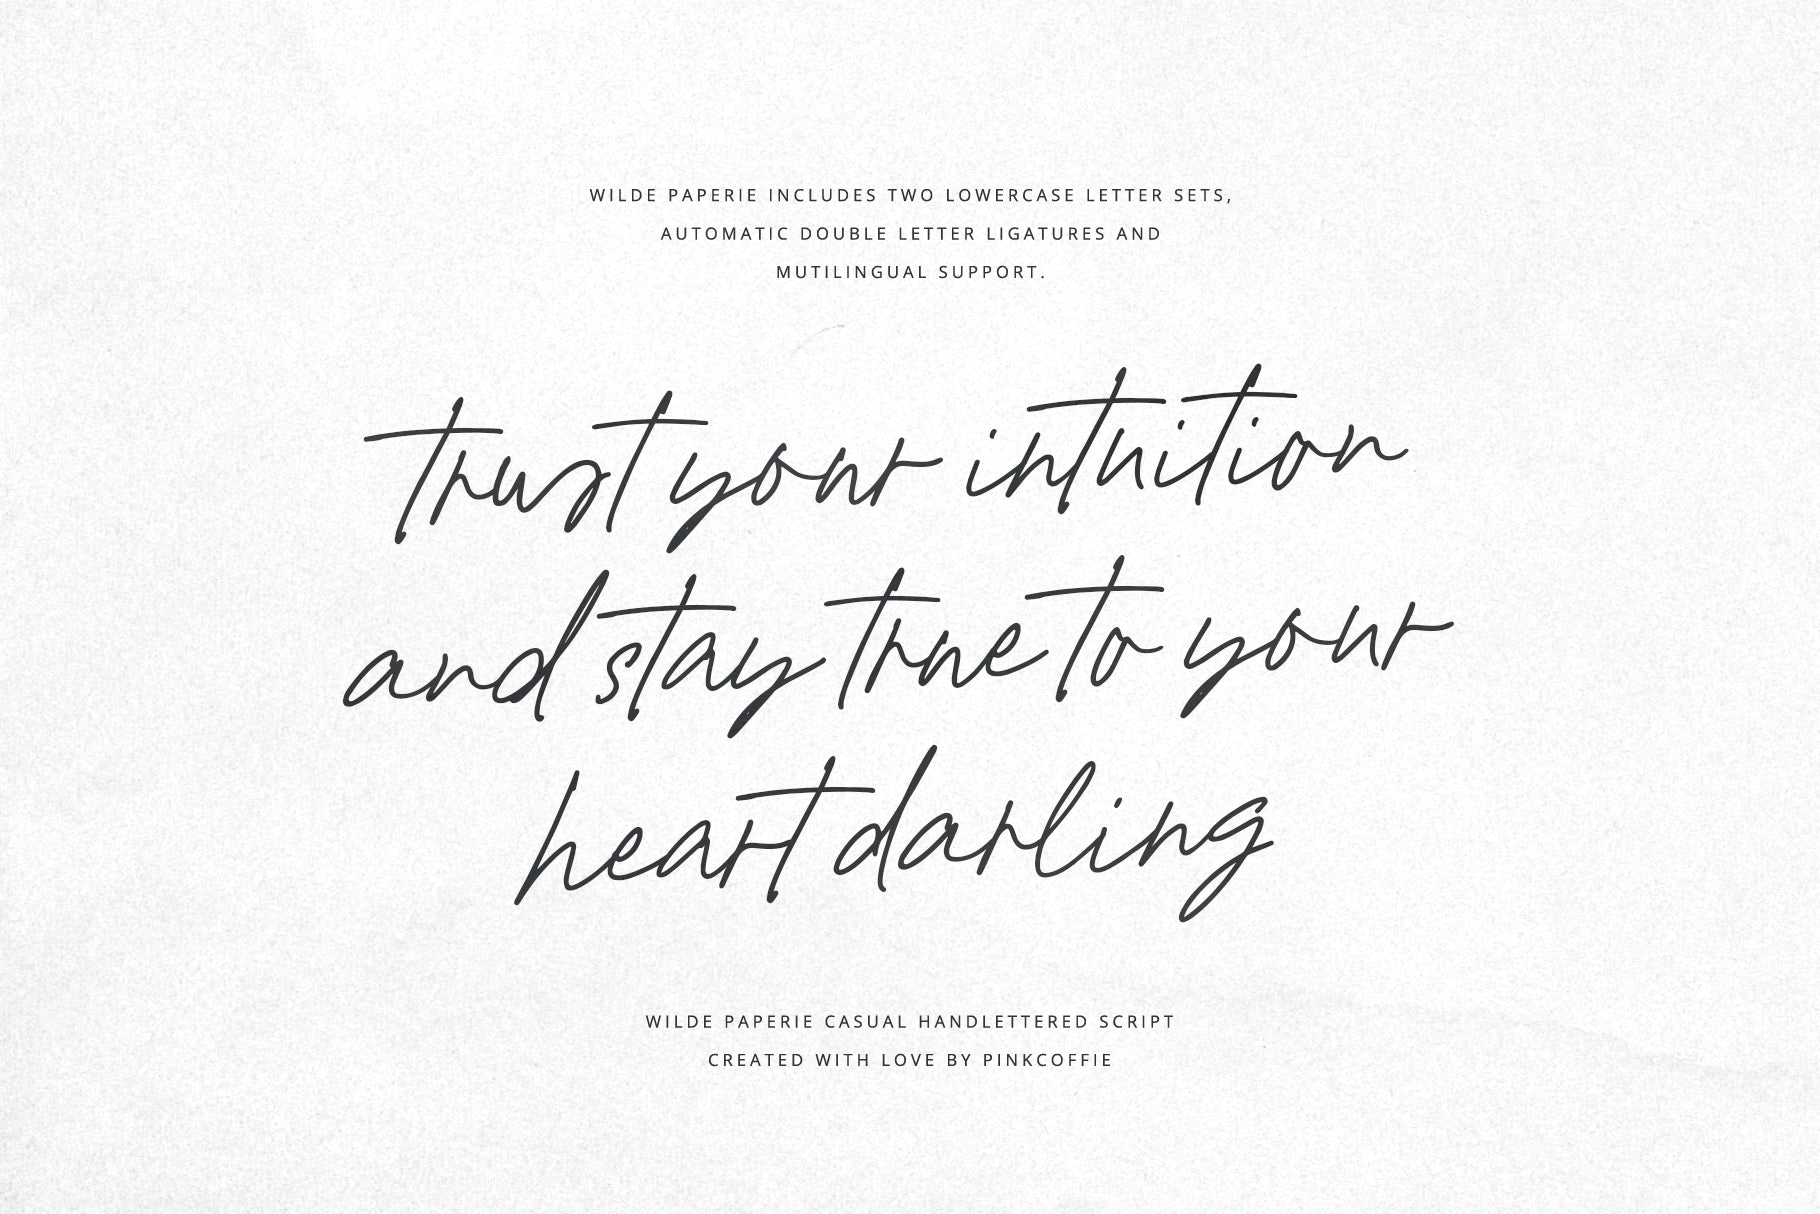 WILDE PAPERIE INCLUDES TWO LOWERCASE LETTER SETS,
AUTOMATIC DOUBLE LETTER LIGATURES AND
MUTILINGUAL SUPPORT.
trust your intuition
and stay true to your
heart darling
WILDE PAPERIE CASUAL HANDLETTERED SCRIPT
CREATED WITH LOVE BY PINKCOFFIE